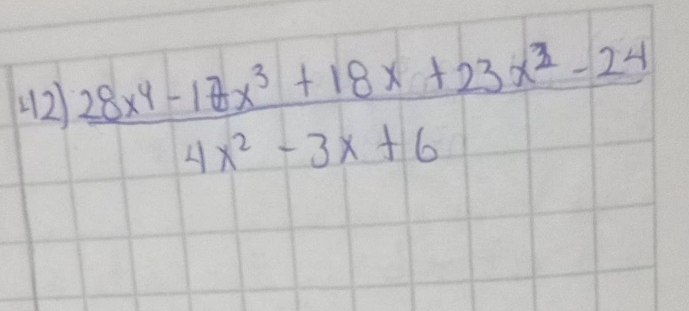 42) 28x⁴ - 17x³ + 18x + 23x² - 24
4x² - 3x + 6